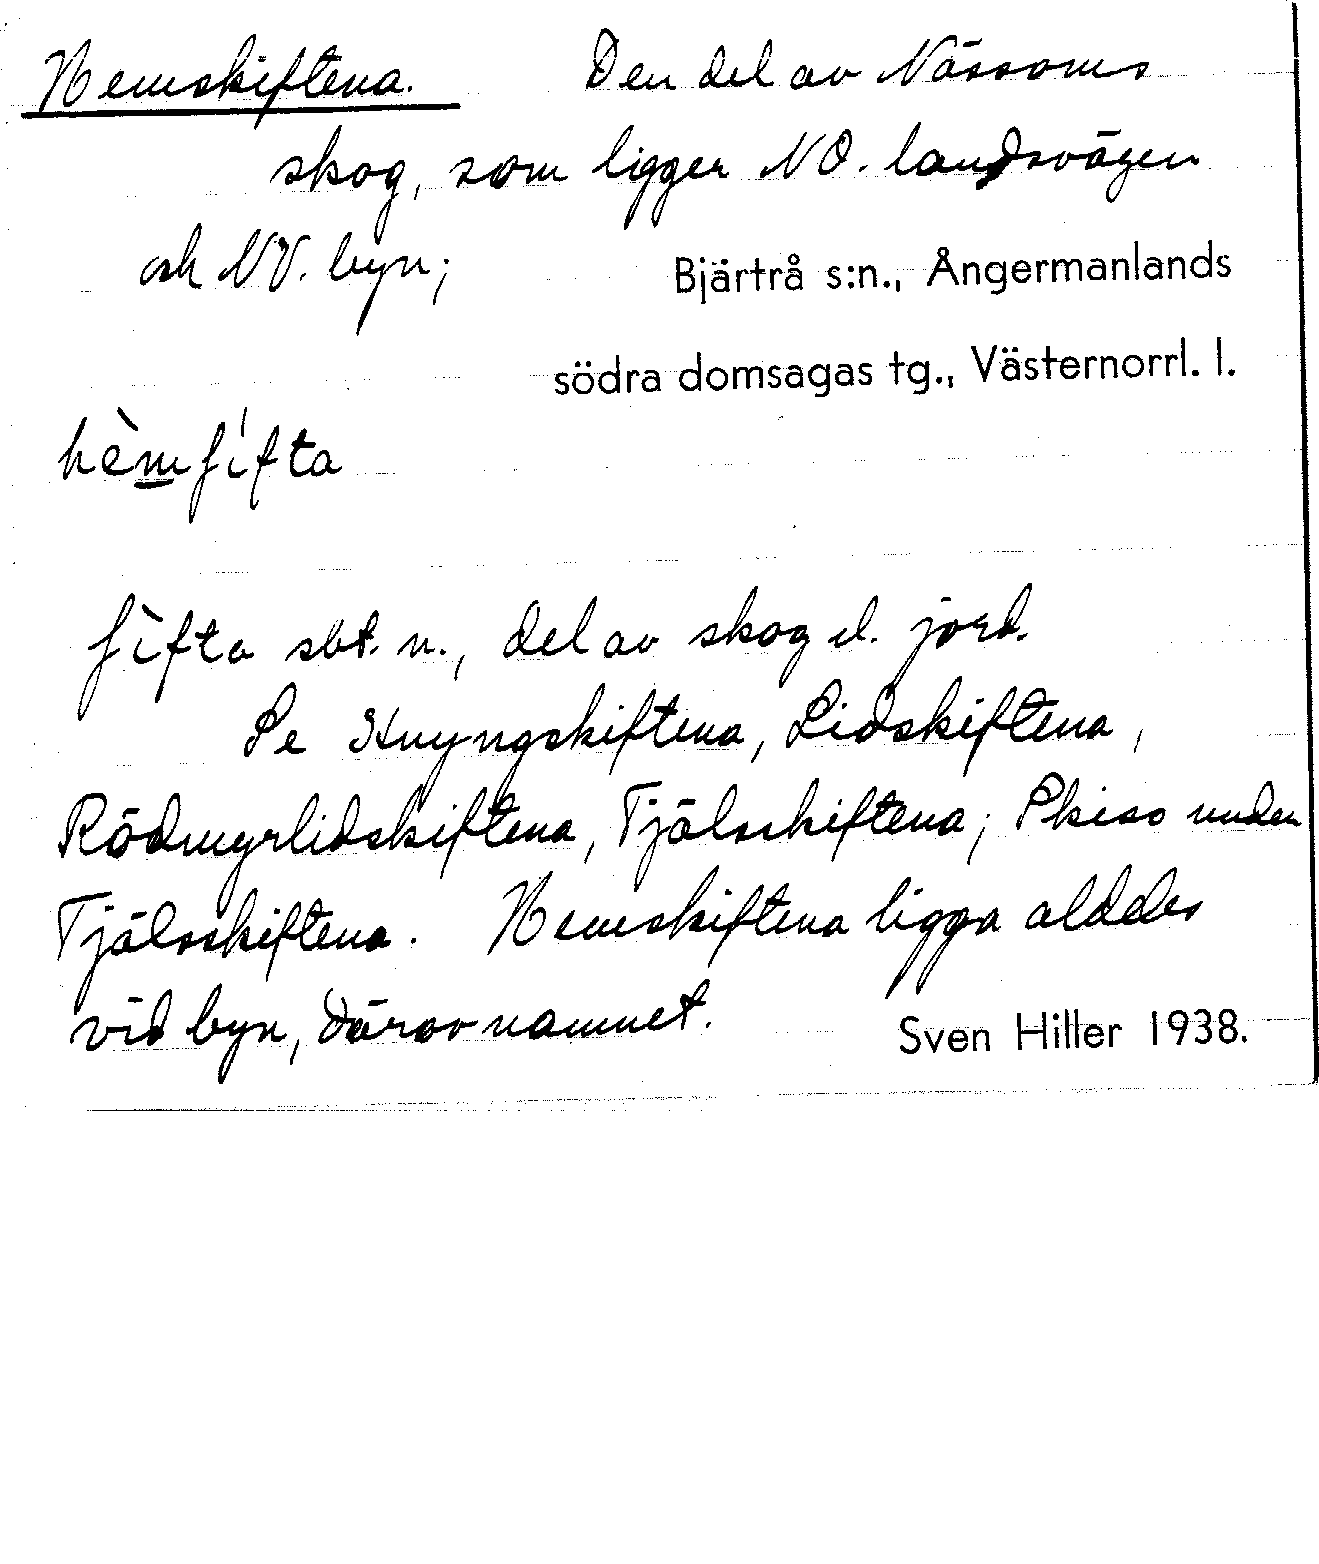 Hemskiftena. Den del av Nässoms
skog, som ligger NO. landsvägen
och NV. byn; Bjärtrå s:n., Ångermanlands
södra domsagas tg., Västernorrl. l.
hèmʃifta
ʃìfta sbt. n., del av skog el. jord.
Se Knyngskiftena, Lidskiftena,
Rödmyrlidskiftena, Tjälsskiftena; Skiss under
Tjälsskiftena. Hemskiftena ligga alldeles
vid byn, därav namnet. Sven Hiller 1938.